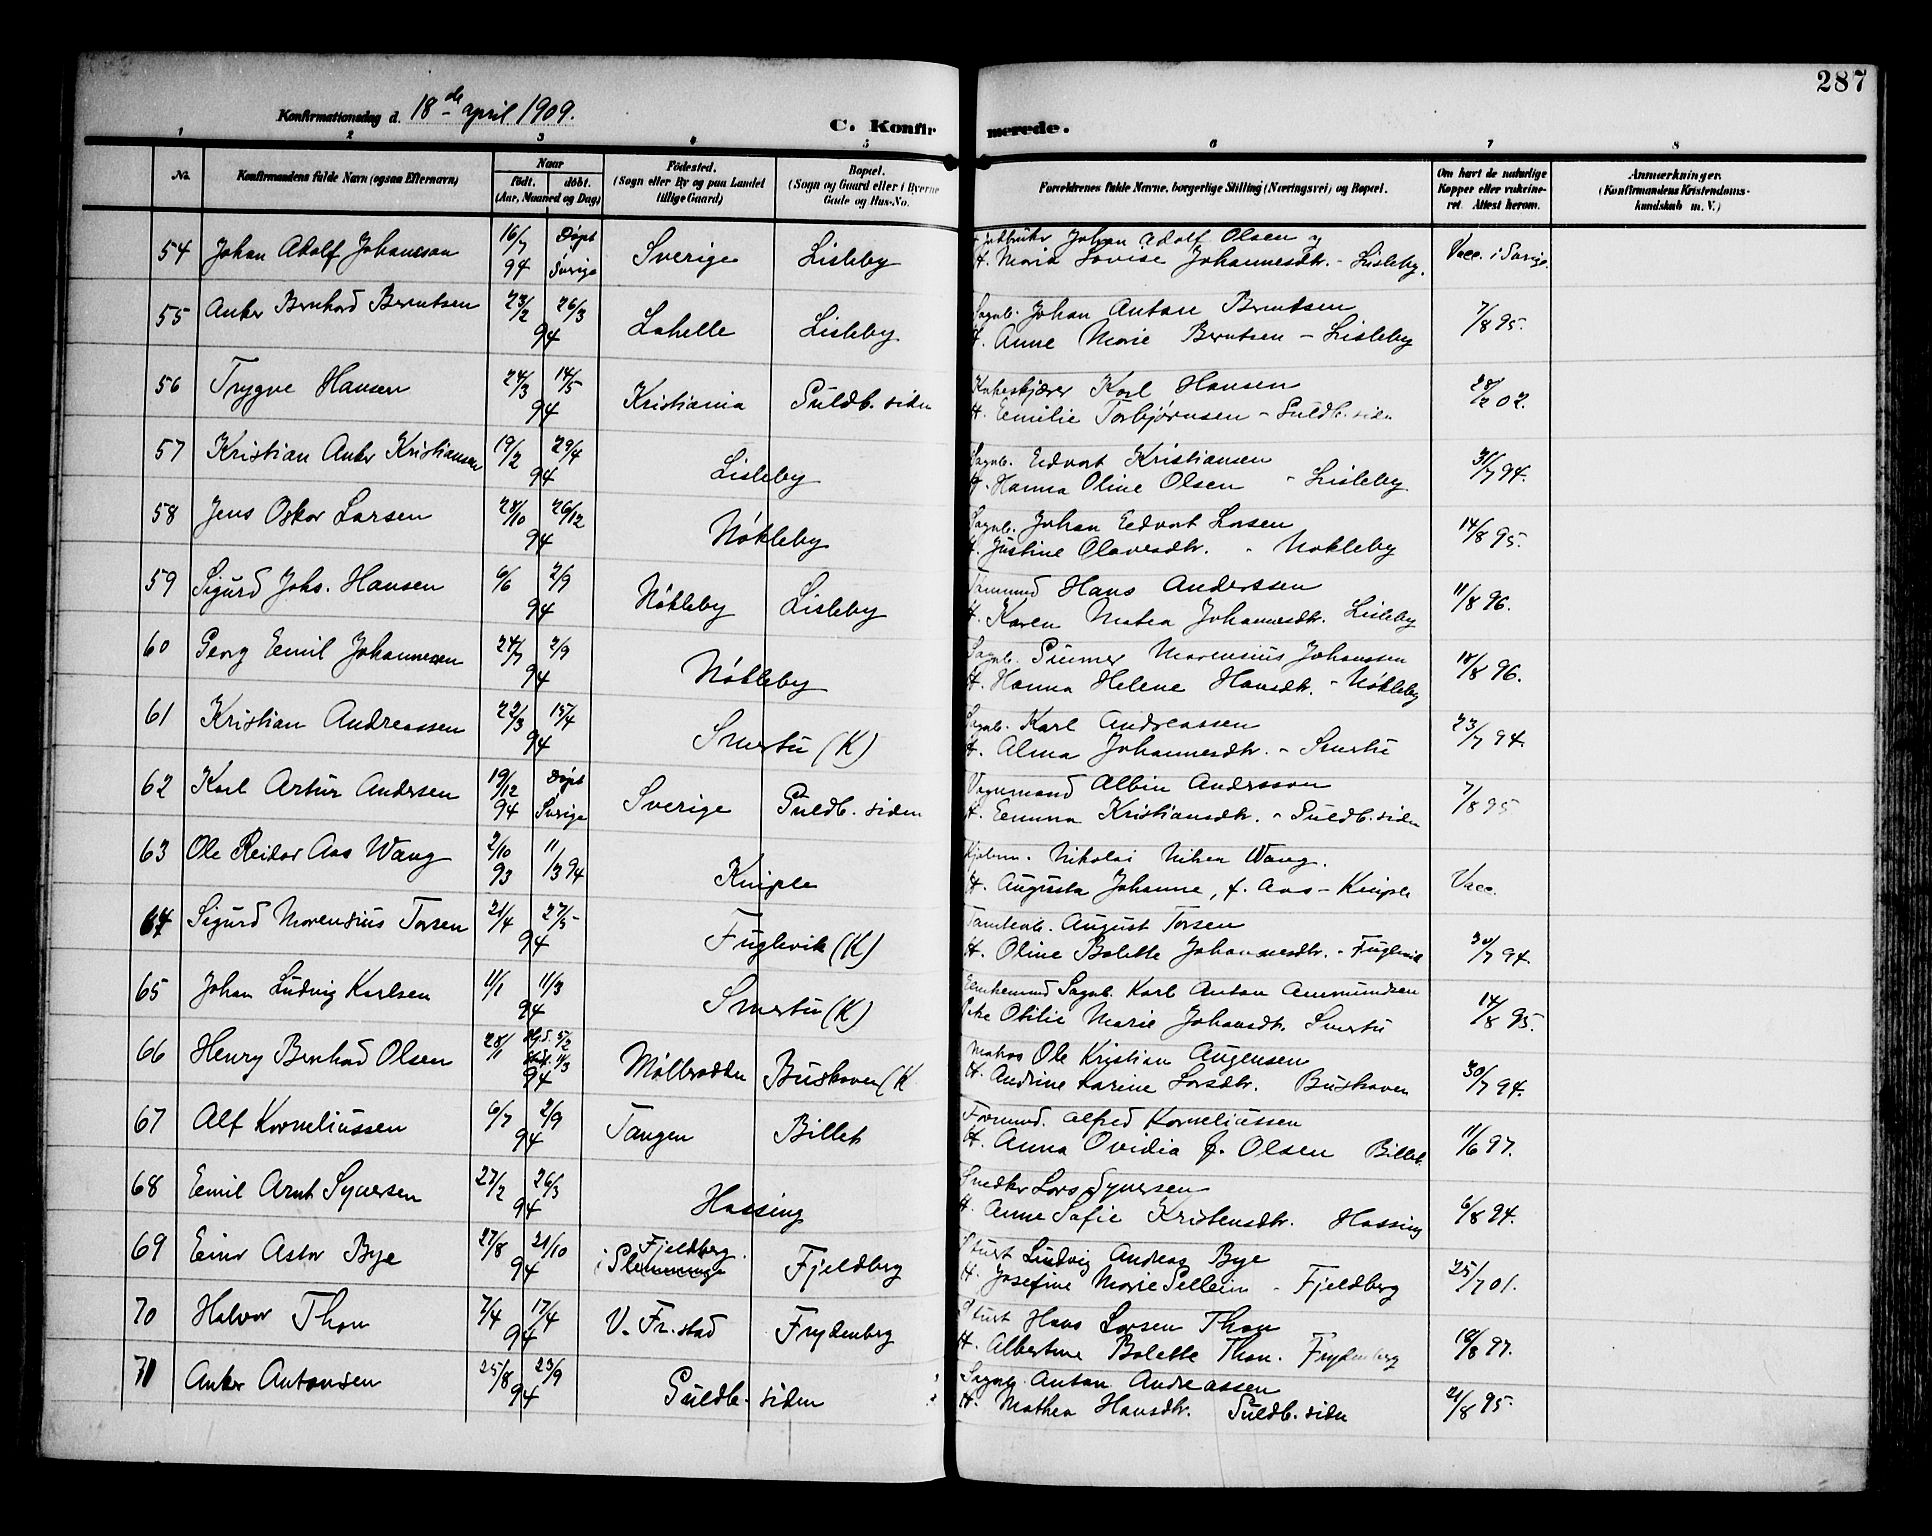 287
Konfirmationsdag d. 18de april 1909.
C. Konfirmerede.
1 2 3 4 5 6 7 8
No. Konfirmandens fulde Navn (ogsaa Efternavn) Naar født, døbt. (Aar, Maaned og Dag) Fødested. (Sogn eller By og paa Landet tillige Gaard) Bopæl. (Sogn og Gaard eller i Byerne Gade og Hus-No. Forældrenes fulde Navne, borgerlige Stilling (Næringsvei) og Bopæl. Om havt de naturlige Kopper eller vakcineret. Attest herom. Anmærkninger. (Konfirmandens Kristendomskundskab m. V.)
54 Johan Adolf Johanessan 16/7 94 Døpt Sverige Sverige Lisleby Johan Adolf Olsen og
H. Maria Lovise Johannesdtr. - Lisleby. Vacc. i Sverig.
55 Anker Bernhard Berntsen 23/2 26/3 94 Lahelle Lisleby Sagarb. Johan Anton Berntsen
H. Anne Marie Berntsen - Lisleby 7/8 95.
56 Trygve Hansen 24/3 14/5 94 Kristiania Guldb. siden Karl Hansen
H. Emilie Torbjørnsen - Guldb. siden 28/2 02.
57 Kristian Anker Kristiansen 19/2 29/4 94 Lisleby Sagarb. Edvart Kristiansen
H. Hanna Oline Olsen - Lisleby 31/7 94.
58 Jens Oskar Larsen 28/10 26/12 94 Nøkleby Sagarb. Johan Edvart Larsen
H. Justine Olavesdtr. - Nøkleby 14/8 95.
59 Sigurd Johs. Hansen 6/6 2/9 94 Nøkleby Lisleby Hans Anderssen
H. Karen Matea Johannesdtr. Lisleby 11/8 96.
60 Georg Emil Johannessen 24/7 2/9 94 Nøkleby Sagarb. Marensius Johanssen
H. Hanna Helene Hansdtr. - Nøkleby 18/8 96.
61 Kristian Andreassen 22/3 15/4 94 Smertu (K) Sagarb. Karl Andreassen
H. Alma Johannesdtr. - Smertu 23/7 94.
62 Karl Artur Andersen 19/12 94 Døpt Sverige Sverige Guldb. siden Vognmand Albin Andersson
H. Emma Kristiansdtr. - Guldb. siden 7/8 95
63 Ole Reidar Aas Wang 2/10 93 11/3 94 Kniple Nikolai Wang.
H. Augusta Johanne, f. Aas - Kniple Vacc.
64 Sigurd Marensius Torsen 21/4 27/5 94 Fuglevik (K) Tomtearb. August Torsen
H. Oline Bolette Johannesdtr. - Fuglevik 30/7 94.
65 Johan Ludvig Karlsen 11/1 11/3 94 Smertu (K) Enkemand Sagarb. Karl Anton Ammundsen
Otilie Marie Johansdtr Smertu 14/8 95.
66 Henry Bernhard Olsen 28/1 Hjd. 5/2 11/3 94 Møllerodden Buskoven (K Matros Ole Kristian Augensen
H. Andrine Karine Larsdtr. Buskoven 30/7 94.
67 Alf Korneliussen 6/7 2/9 94 Tangen Billet Formand. Alfred Korneliussen
H. Anna Ovidia f. Olsen Billet. 11/6 97.
68 Emil Arnt Syversen 27/2 26/3 94 Hassing Snedker Lars Syversen
H. Anne Sofie Kristensdtr. Hassing 6/8 94.
69 Einar Astor Bye 27/8 21/10 94 Fjeldberg. i Glemminge Fjeldberg Ludvig Andreas Bye
H. Josefine Marie Pellein - Fjeldberg 25/7 01.
70 Halvor Thon 7/4 17/4 94 V. Fr.stad Frydenberg Hans Larsen Thon
H. Albertine Bolette Thon. Frydenberg 19/8 97.
71 Anker Antonsen 25/8 23/9 94 Guldb. siden Sagarb. Anton Andreassen
H. Mathea Hansdtr. Guldb. siden 21/8 95.